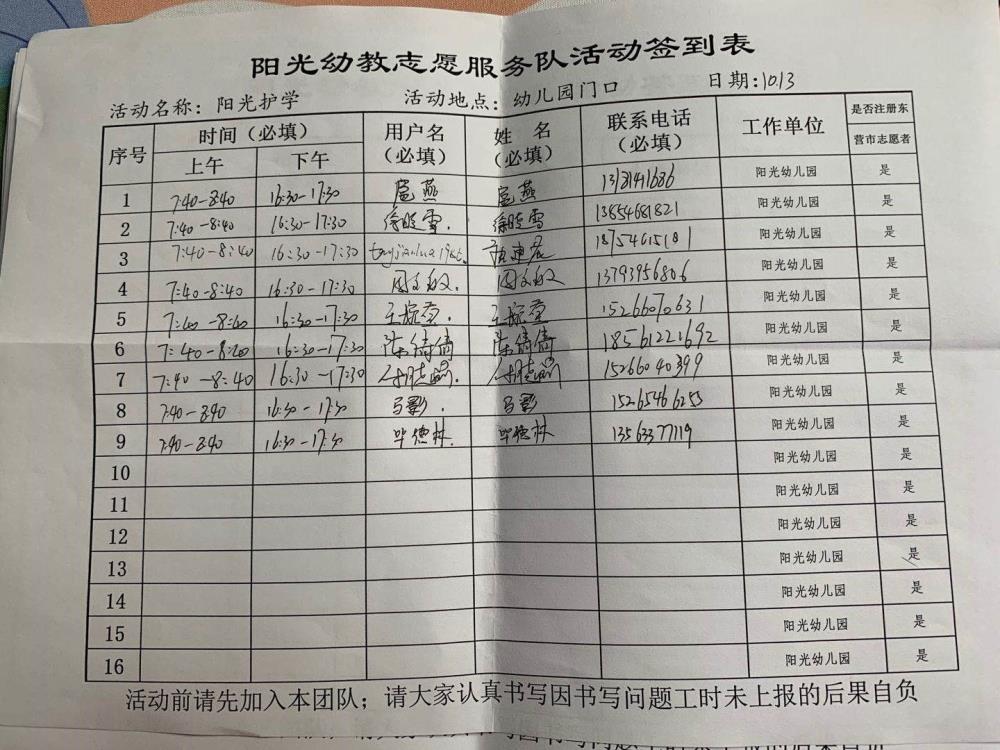 阳光幼教志愿服务队活动签到表
活动名称：阳光护学 活动地点：幼儿园门口 日期：10.13
序号 时间（必填） 用户名（必填） 姓名（必填） 联系电话（必填） 工作单位 是否注册东营市志愿者
上午 下午
1 7:40-8:40 16:30-17:30 扈燕 扈燕 13181441686 阳光幼儿园 是
2 7:40-8:40 16:30-17:30 徐晓雪. 徐晓雪 13854681821 阳光幼儿园 是
3 7:40-8:40 16:30-17:30 18754615181 阳光幼儿园 是
4 7:40-8:40 16:30-17:30 周文敏. 周文敏 13793956806 阳光幼儿园 是
5 7:40-8:40 16:30-17:30 15266070631 阳光幼儿园 是
6 7:40-8:40 16:30-17:30 陈倩倩 陈倩倩 18561221692 阳光幼儿园 是
7 7:40-8:40 16:30-17:30 15266040399 阳光幼儿园 是
8 7:40-8:40 16:30-17:30 马影. 马影 15265466255 阳光幼儿园 是
9 7:40-8:40 16:30-17:30 毕德林. 毕德林 13563377119 阳光幼儿园 是
10 阳光幼儿园 是
11 阳光幼儿园 是
12 阳光幼儿园 是
13 阳光幼儿园 是
14 阳光幼儿园 是
15 阳光幼儿园 是
16 阳光幼儿园 是
活动前请先加入本团队；请大家认真书写因书写问题工时未上报的后果自负